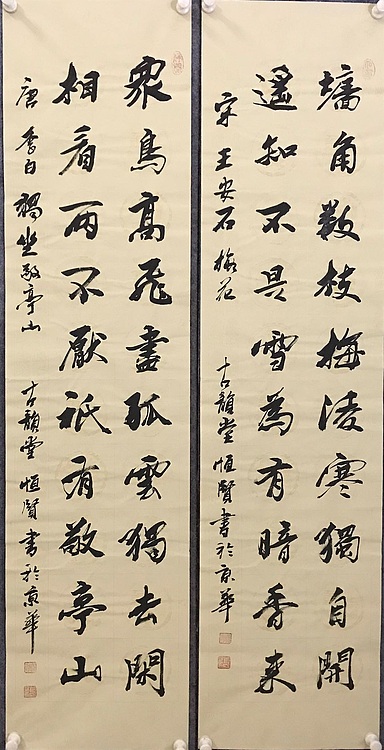 墻角數枝梅凌寒獨自開
遥知不是雪為有暗香来
宋 王安石 梅花 古韻堂 恒賢書於京華
衆鳥高飛盡孤雲獨去閑
相看两不厭衹有敬亭山
唐 李白 獨坐敬亭山 古韻堂 恒賢書於京華